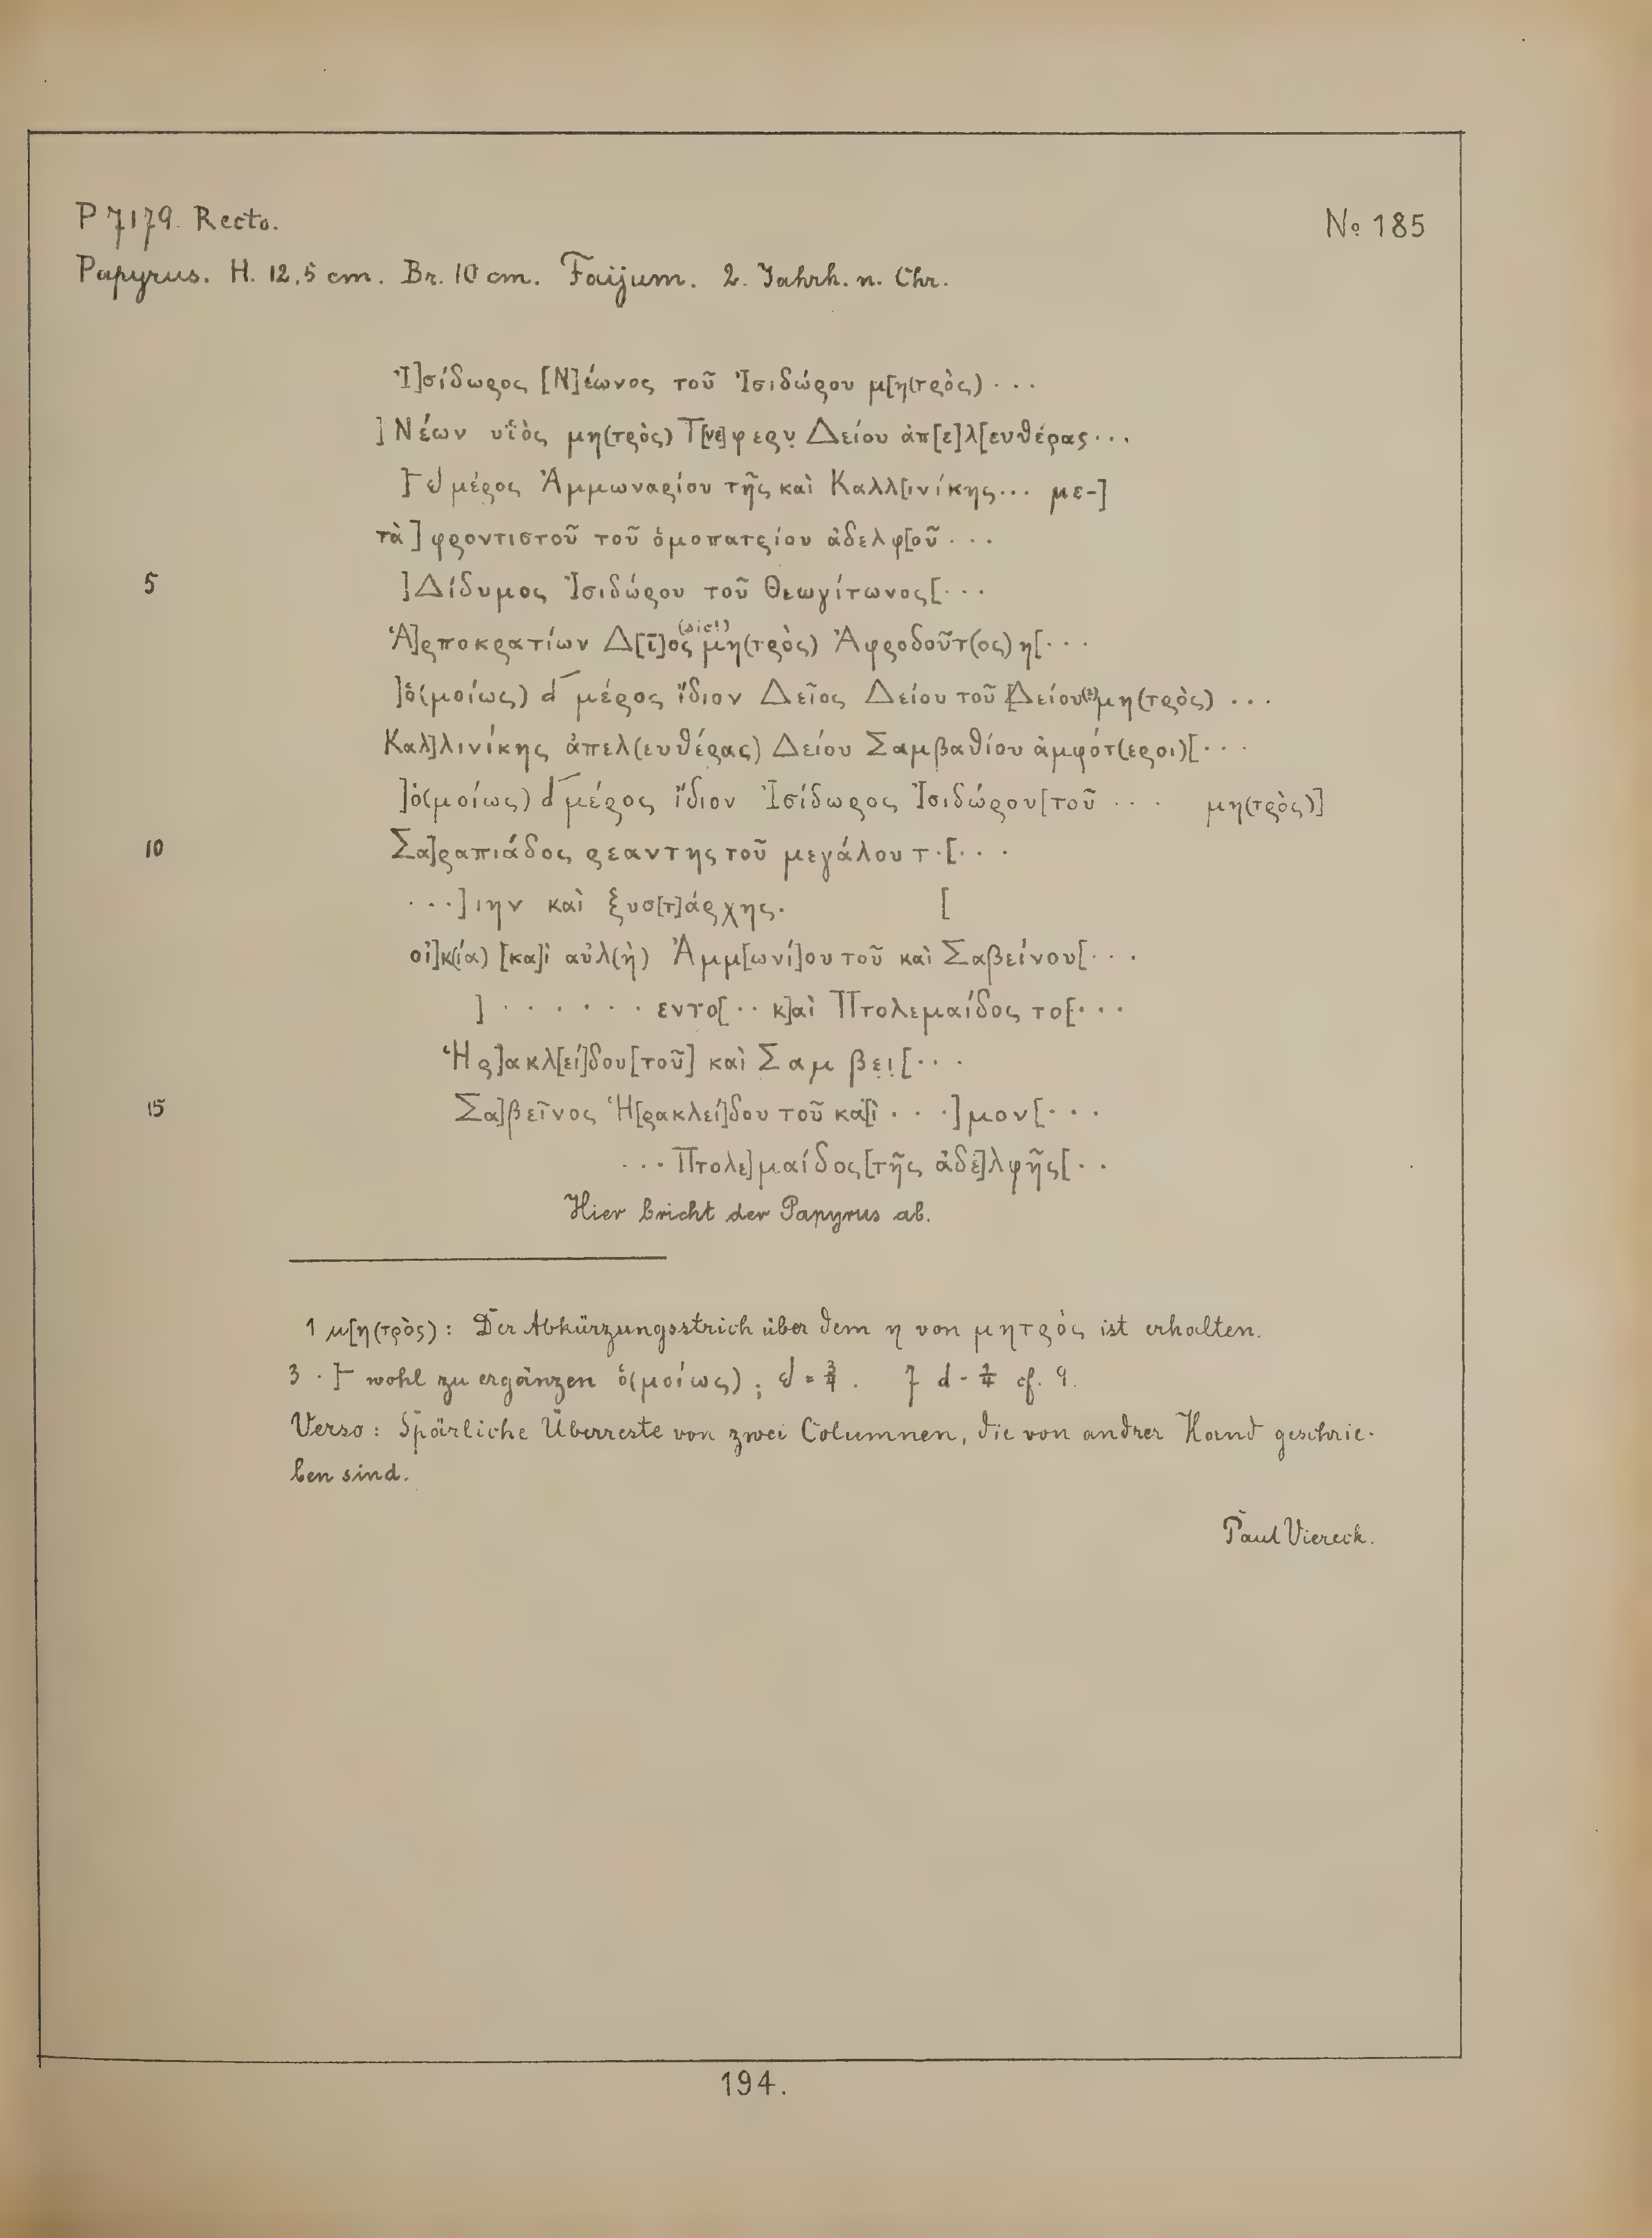 P 7179. Recto.
No 185
Papyrus. H. 12,5 cm. Br. 10 cm. Faijum. 2. Jahrh. n. Chr.
Ἰ]σίδωρος [Ν]έωνος τοῦ Ἰσιδώρου μ[η(τρὸς) · · ·
] Νέων υἱὸς μη(τρὸς) Τ[νε]φερν̣ Δείου ἀπ[ε]λ[ευθέρας · · ·
] μέρος Ἀμμωναρίου τῆς καὶ Καλλ[ινίκης ... με-]
τὰ ] φροντιστοῦ τοῦ ὁμοπατρίου ἀδελφ[οῦ · · ·
5 ]Δίδυμος Ἰσιδώρου τοῦ Θεωγίτωνος[· · ·
Ἁ]ρποκρατίων Δ[ῖ]ος (sic!) μη(τρὸς) Ἀφροδοῦτ(ος) η[· · ·
]ὁ(μοίως) d μέρος ἴδιον Δεῖος Δείου τοῦ [Δείου(?) μη(τρὸς) · · ·
Καλ]λινίκης ἀπελ(ευθέρας) Δείου Σαμβαθίου ἀμφότ(εροι)[· · ·
]ὁ(μοίως) d μέρος ἴδιον Ἰσίδωρος Ἰσιδώρου[τοῦ · · · μη(τρὸς)]
10 Σα]ραπιάδος ρεαντης τοῦ μεγάλου τ·[· · ·
· · ·]ιην καὶ ξυσ[τ]άρχης. [
οἰ]κ(ία) [κα]ὶ αὐλ(ὴ) Ἀμμ[ωνί]ου τοῦ καὶ Σαβείνου[· · ·
] · · · · · · εντο[· · κ]αὶ Πτολεμαίδος το[· · ·
Ἡρ]ακλ[εί]δου[τοῦ] καὶ Σαμβε̣ι̣[· · ·
15 Σα]βεῖνος Ἡ[ρακλεί]δου τοῦ κα[ὶ · · ·]μον[· · ·
· · · Πτολε]μαίδος[τῆς ἀδε]λφῆς[· ·
Hier bricht der Papyrus ab.
1 μ[η(τρὸς): Der Abkürzungsstrich über dem η von μητρός ist erhalten.
3 · ]⊢ wohl zu ergänzen ὁ(μοίως); = 3/4. 7 d = 1/4 cf. 9.
Verso: Spärliche Überreste von zwei Columnen, die von andrer Hand geschrie-
ben sind.
Paul Viereck.
194.